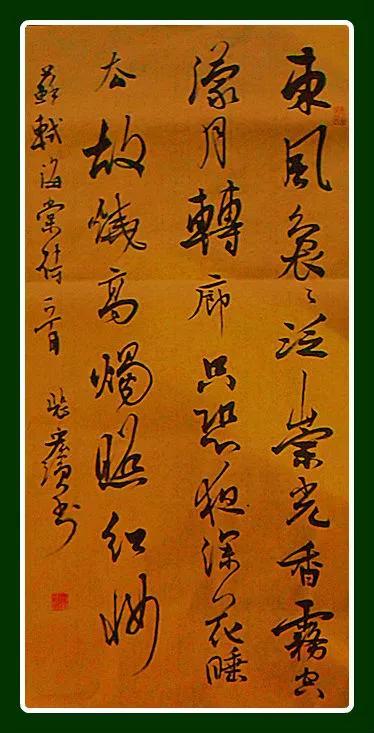 東風裊々泛崇光香霧空
濛月轉廊只恐夜深花睡
去故燒高燭照紅妝
蘇軾海棠詩一首 書